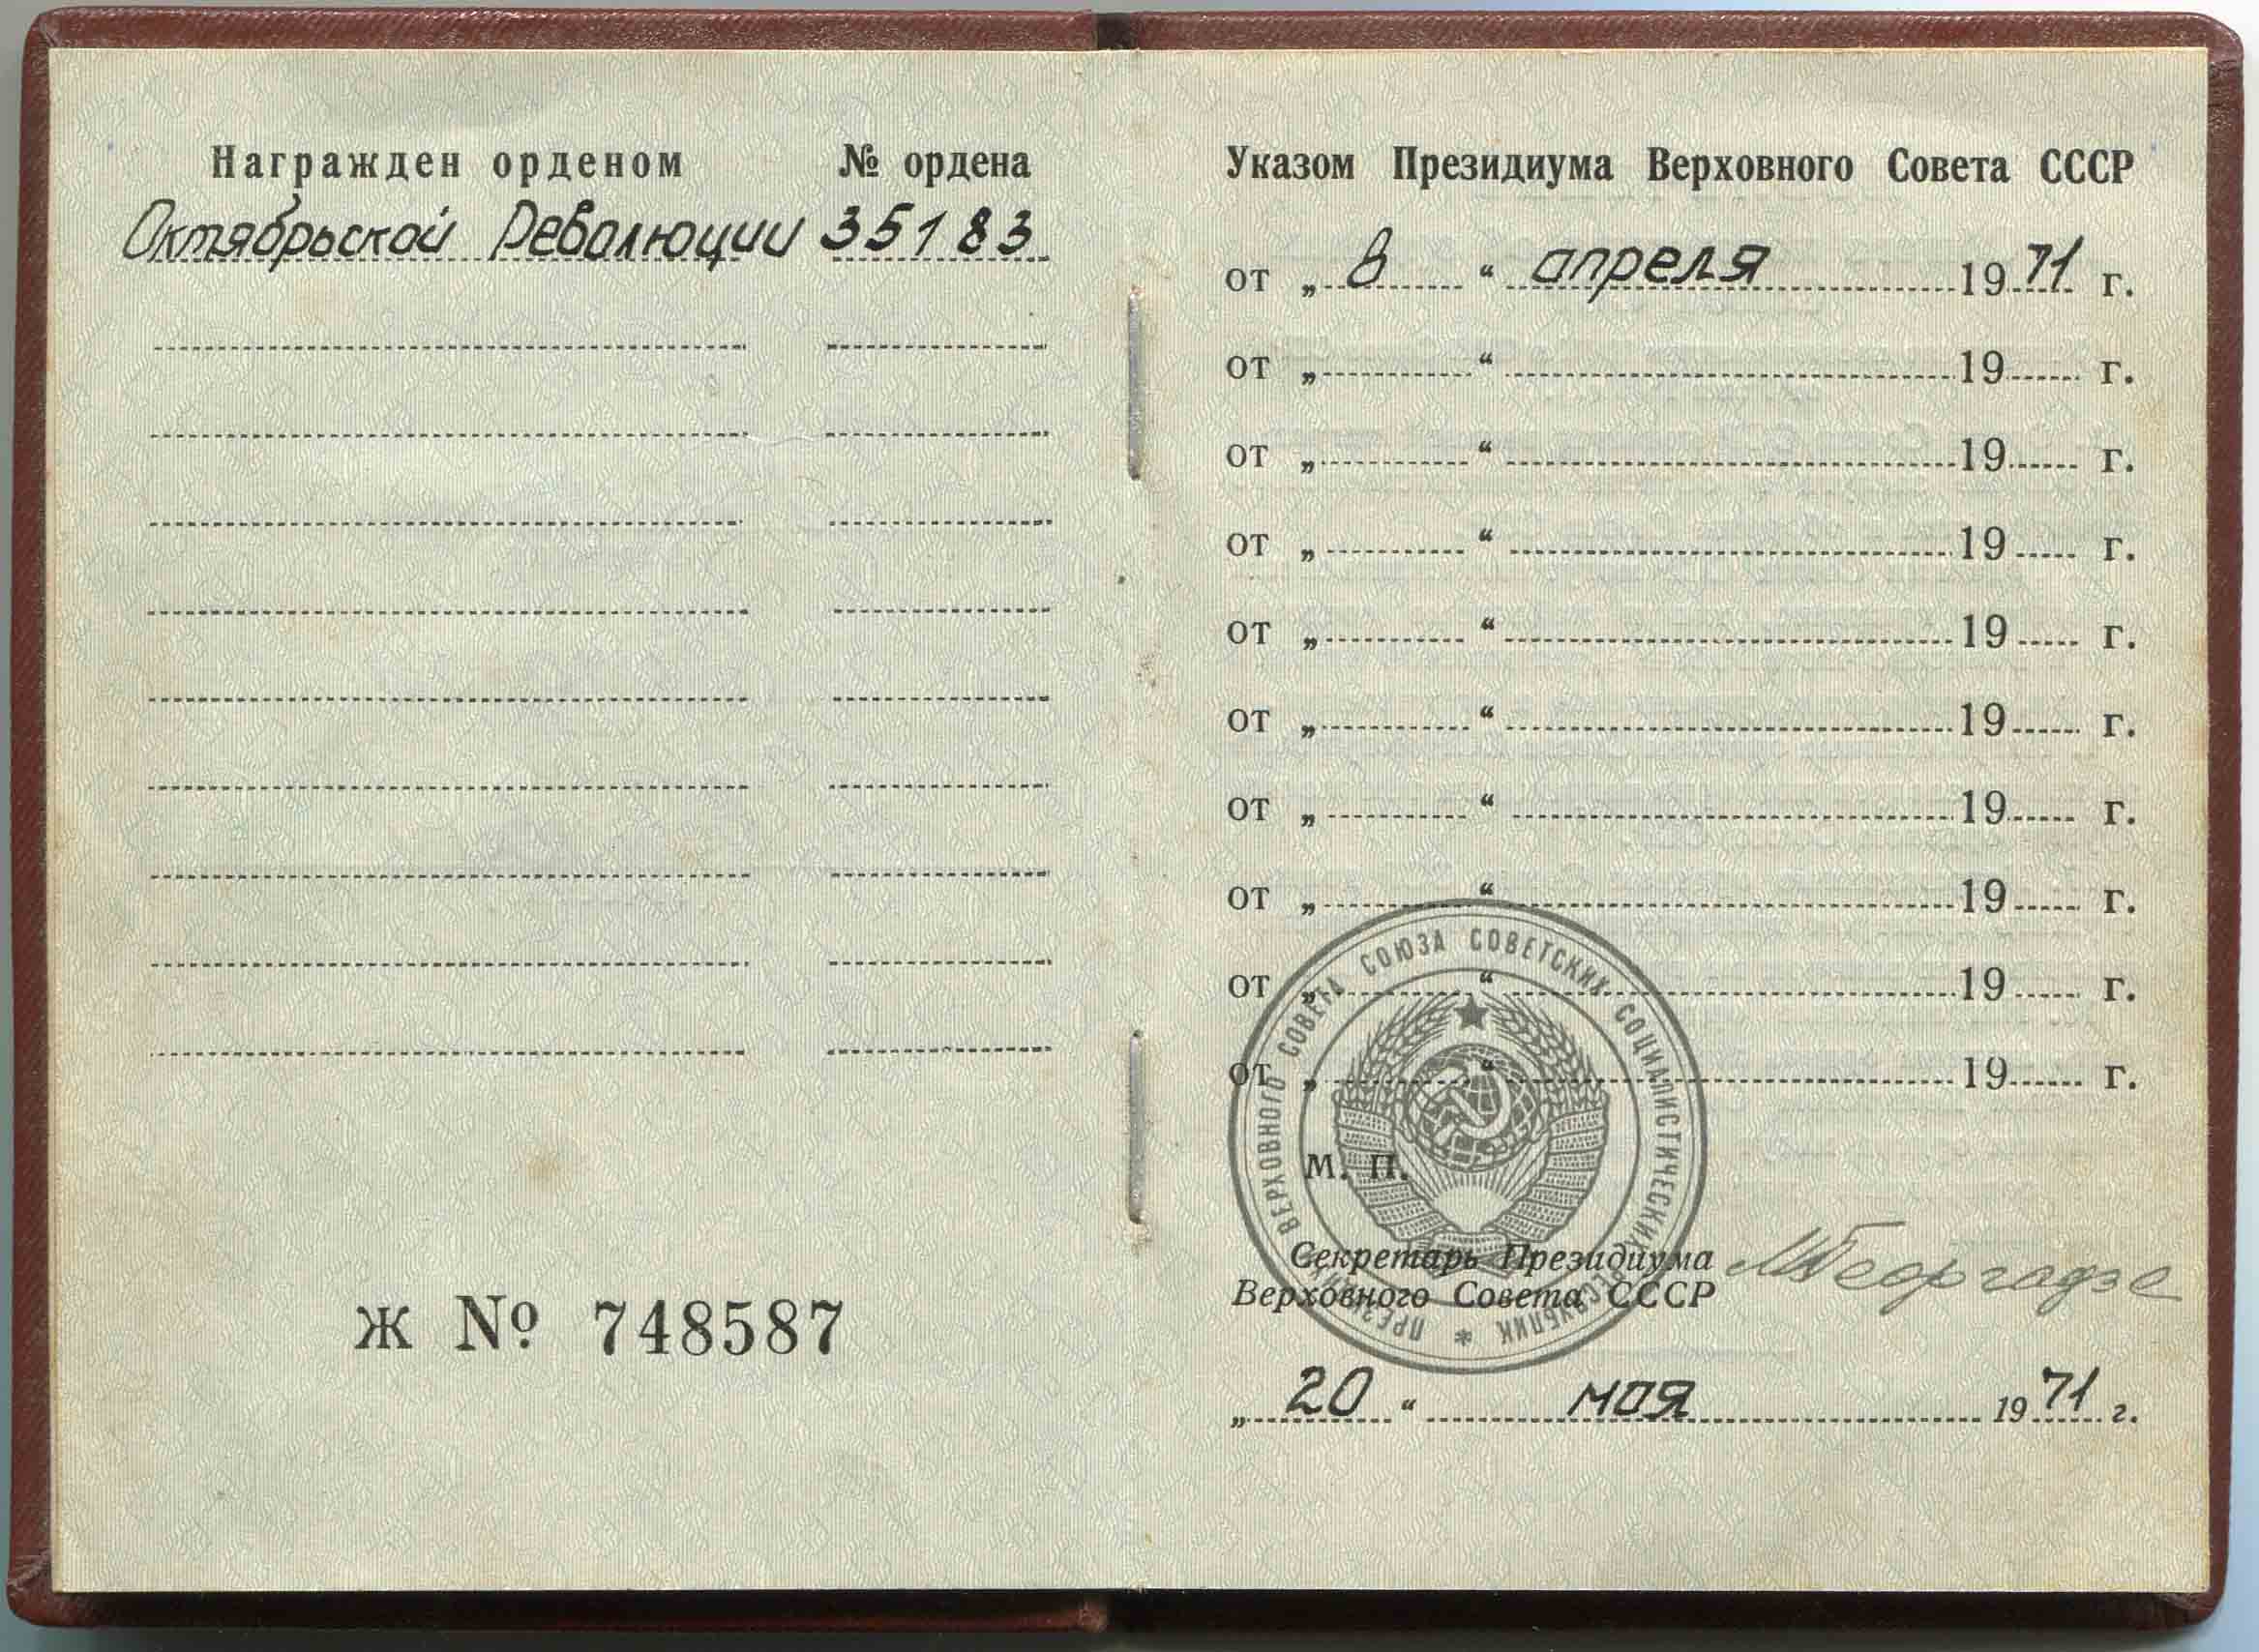 Награжден орденом № ордена
Октябрьской Революции 35183
Ж № 748587
Указом Президиума Верховного Совета СССР
от „ 8 “ апреля 1971 г.
от „ “ 19 г.
от „ “ 19 г.
от „ “ 19 г.
от „ “ 19 г.
от „ “ 19 г.
от „ “ 19 г.
от „ “ 19 г.
от „ “ 19 г.
от „ “ 19 г.
ПРЕЗИДИУМ ВЕРХОВНОГО СОВЕТА СОЮЗА СОВЕТСКИХ СОЦИАЛИСТИЧЕСКИХ РЕСПУБЛИК *
М. П.
Секретарь Президиума
Верховного Совета СССР
МГеоргадзе
„ 20 “ мая 1971 г.